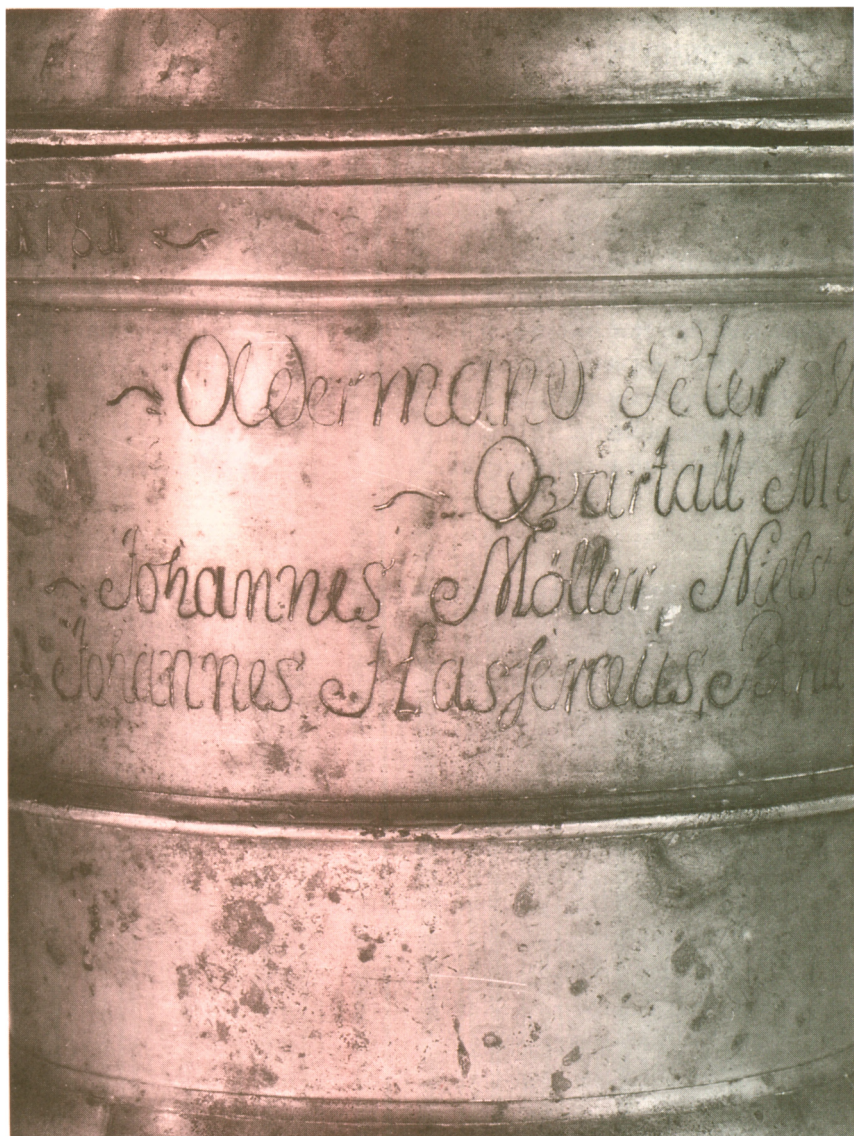 ~ Oldermand Peter
~ Qvartall
~ Johannes Möller, Niels
Johannes Hasferæus,